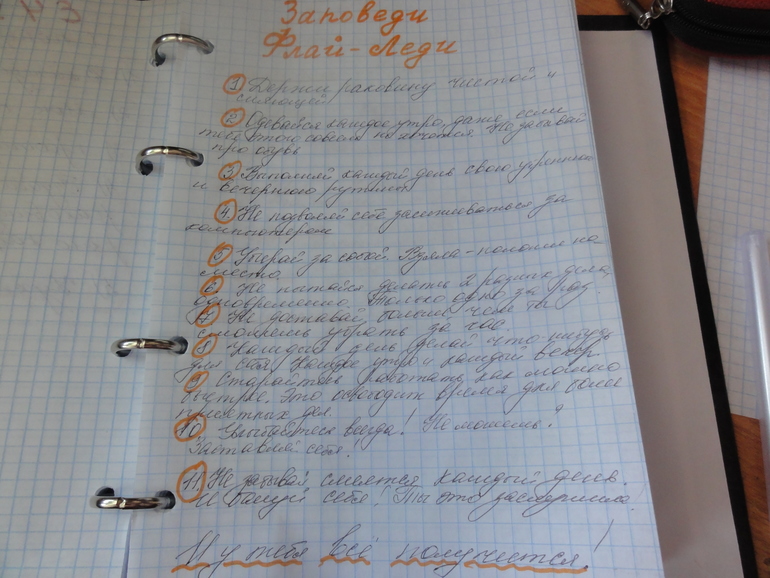 Заповеди
Флай-Леди
1 Держи раковину чистой и
сияющей
2 Одевайся каждое утро, даже если
тебе этого совсем не хочется. Не забывай
про обувь
3 Выполняй каждый день свою утреннюю
и вечернюю рутину
4. Не позволяй себе засиживаться за
компьютером
5 Убирай за собой. Взяла - положи на
место
6. Не пытайся делать 2 разных дела
одновременно. Только одно за раз.
7 Не доставай больше чем ты
сможешь убрать за час
8 Каждый день делай что-нибудь
для себя. Каждое утро и каждый вечер.
9 Старайтесь работать как можно
быстрее. Это освободит время для более
приятных дел.
10. Улыбайтесь всегда! Не можешь?
Заставляй себя!
11. Не забывай смеятся каждый день.
И балуй себя! Ты это заслужила!
И у тебя всё получется!